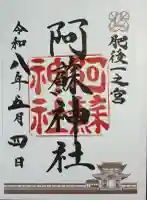 肥後一之宮
阿蘇神社
阿蘇神社
令和八年五月四日